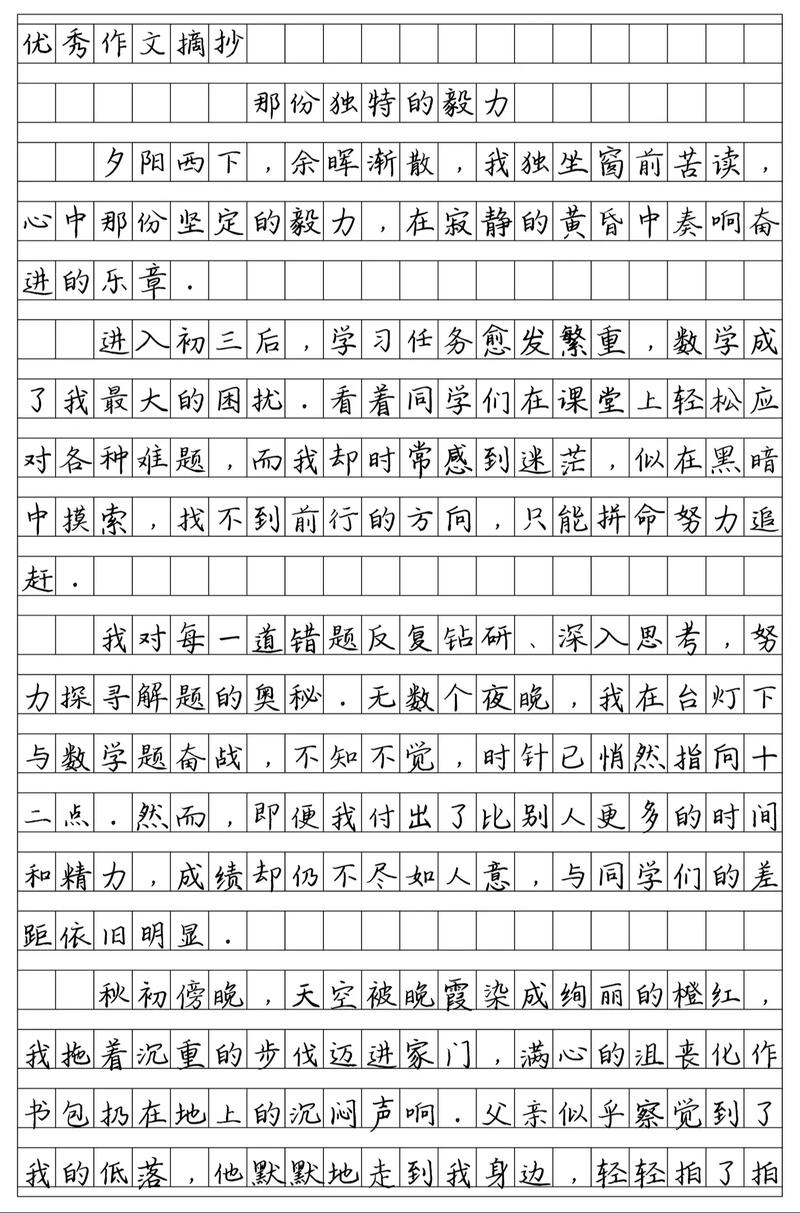 优秀作文摘抄
那份独特的毅力
夕阳西下，余晖渐散，我独坐窗前苦读，
心中那份坚定的毅力，在寂静的黄昏中奏响奋
进的乐章．
进入初三后，学习任务愈发繁重，数学成
了我最大的困扰．看着同学们在课堂上轻松应
对各种难题，而我却时常感到迷茫，似在黑暗
中摸索，找不到前行的方向，只能拼命努力追
赶．
我对每一道错题反复钻研、深入思考，努
力探寻解题的奥秘．无数个夜晚，我在台灯下
与数学题奋战，不知不觉，时针已悄然指向十
二点．然而，即便我付出了比别人更多的时间
和精力，成绩却仍不尽如人意，与同学们的差
距依旧明显．
秋初傍晚，天空被晚霞染成绚丽的橙红，
我拖着沉重的步伐迈进家门，满心的沮丧化作
书包扔在地上的沉闷声响．父亲似乎察觉到了
我的低落，他默默地走到我身边，轻轻拍了拍